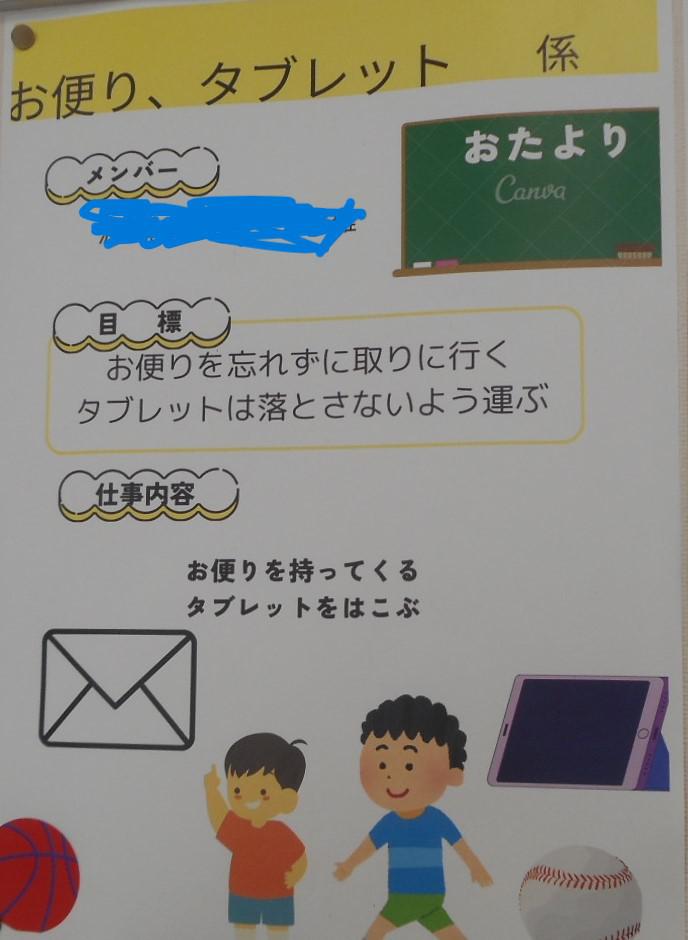 お便り、タブレット 係
おたより
Canva
メンバー
目 標
お便りを忘れずに取りに行く
タブレットは落とさないよう運ぶ
仕事内容
お便りを持ってくる
タブレットをはこぶ